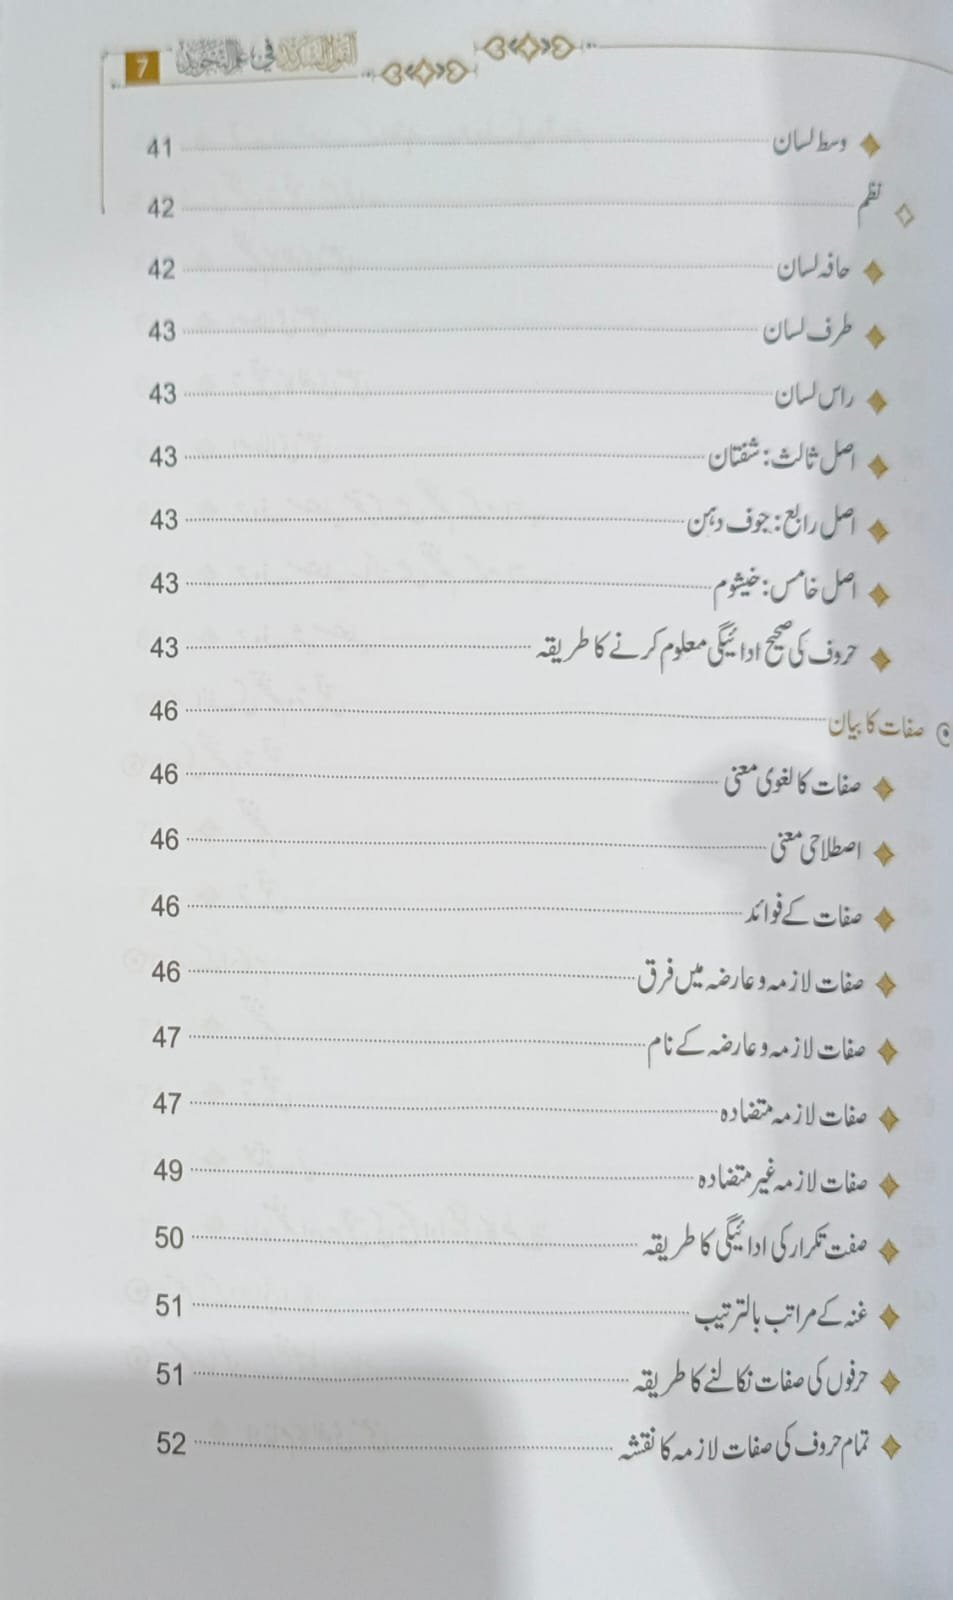 القول السدید فی علم التجوید 7
وسط لسان 41
نظم 42
حافہ لسان 42
طرف لسان 43
راس لسان 43
اصل ثالث: شفتان 43
اصل رابع: جوف دہن 43
اصل خامس: خیشوم 43
حروف کی صحیح ادائیگی معلوم کرنے کا طریقہ 43
صفات کا بیان 46
صفات کا لغوی معنی 46
اصطلاحی معنی 46
صفات کے فوائد 46
صفات لازمہ و عارضہ میں فرق 46
صفات لازمہ و عارضہ کے نام 47
صفات لازمہ متضادہ 47
صفات لازمہ غیر متضادہ 49
صفت تکرار کی ادائیگی کا طریقہ 50
غنہ کے مراتب بالترتیب 51
حرفوں کی صفات نکالنے کا طریقہ 51
تمام حروف کی صفات لازمہ کا نقشہ 52